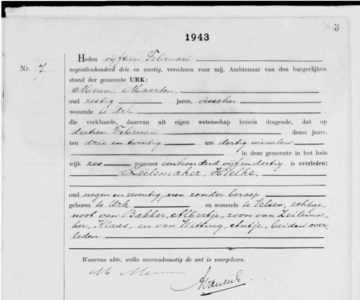 3
1943
Heden vijftien Februari
negentienhonderd drie en veertig, verscheen voor mij, Ambtenaar van den burgerlijken
Nr. 7 stand der gemeente URK:
Maarten,
oud zestig jaren, visscher
wonende te Urk
die verklaarde, daarvan uit eigen wetenschap kennis dragende, dat op
dertien Februari dezes jaars,
ten drie en twintig ure dertig minuten
in deze gemeente in het huis
wijk zes nummer eenhonderd vijfendertig is overleden:
Zeilemaker, Hielke,
oud negen en zeventig jaren zonder beroep
geboren te Urk en wonende te Velsen, echtge-
noot van Bakker, Albertje, zoon van Zeilema-
ker, Klaas, en van Antje, beiden over-
leden
Waarvan akte, welke overeenkomstig de wet is voorgelezen.